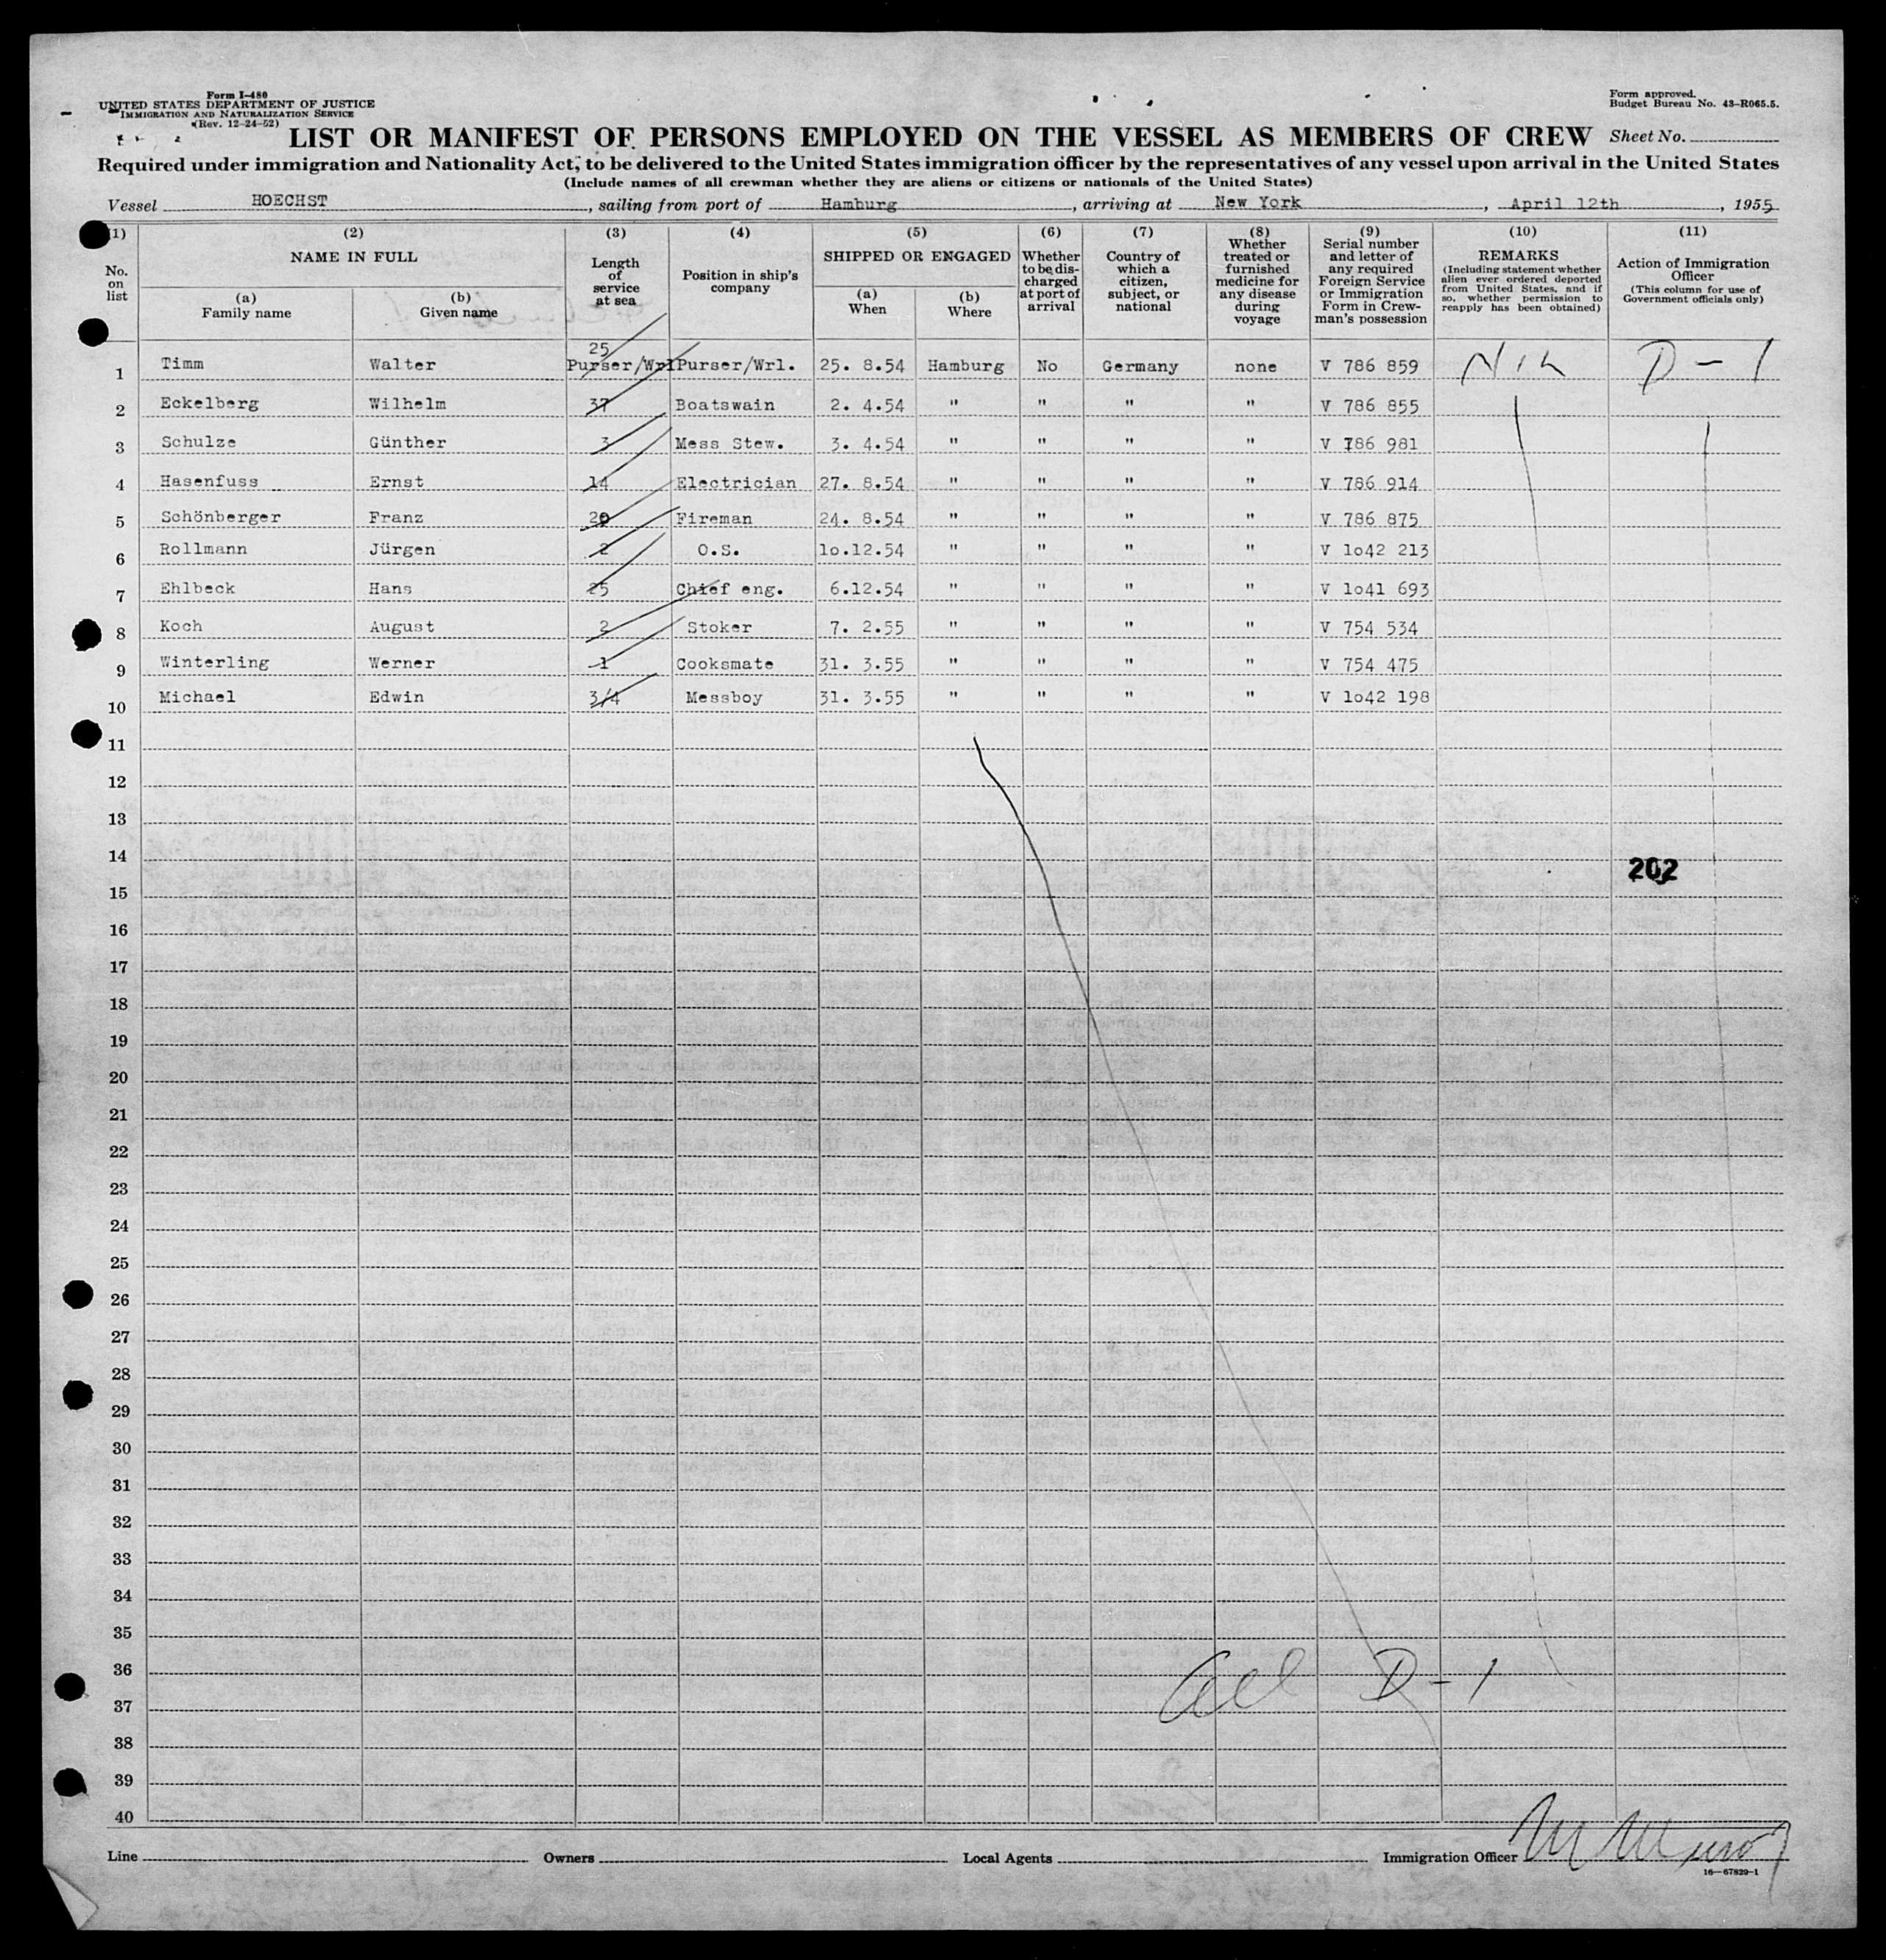 Form I-480
UNITED STATES DEPARTMENT OF JUSTICE
IMMIGRATION AND NATURALIZATION SERVICE
(Rev. 12-24-52)
Form approved.
Budget Bureau No. 43-R065.5.
LIST OR MANIFEST OF PERSONS EMPLOYED ON THE VESSEL AS MEMBERS OF CREW Sheet No.
Required under immigration and Nationality Act, to be delivered to the United States immigration officer by the representatives of any vessel upon arrival in the United States
(Include names of all crewman whether they are aliens or citizens or nationals of the United States)
Vessel HOECHST, sailing from port of Hamburg, arriving at New York, April 12th, 1955
(1) No. on list
(2) NAME IN FULL
(a) Family name
(b) Given name
(3) Length of service at sea
(4) Position in ship's company
(5) SHIPPED OR ENGAGED
(a) When
(b) Where
(6) Whether to be discharged at port of arrival
(7) Country of which a citizen, subject, or national
(8) Whether treated or furnished medicine for any disease during voyage
(9) Serial number and letter of any required Foreign Service or Immigration Form in Crewman's possession
(10) REMARKS (Including statement whether alien ever ordered deported from United States, and if so, whether permission to reapply has been obtained)
(11) Action of Immigration Officer (This column for use of Government officials only)
25
1 Timm Walter Purser/Wrl Purser/Wrl. 25. 8.54 Hamburg No Germany none V 786 859 D-1
2 Eckelberg Wilhelm 37 Boatswain 2. 4.54 " " " " V 786 855
3 Schulze Günther 3 Mess Stew. 3. 4.54 " " " " V 786 981
4 Hasenfuss Ernst 14 Electrician 27. 8.54 " " " " V 786 914
5 Schönberger Franz 20 Fireman 24. 8.54 " " " " V 786 875
6 Rollmann Jürgen 2 O.S. 1o.12.54 " " " " V 1o42 213
7 Ehlbeck Hans 25 Chief eng. 6.12.54 " " " " V 1o41 693
8 Koch August 2 Stoker 7. 2.55 " " " " V 754 534
9 Winterling Werner 1 Cooksmate 31. 3.55 " " " " V 754 475
10 Michael Edwin 3/4 Messboy 31. 3.55 " " " " V 1o42 198
11
12
13
14
202
15
16
17
18
19
20
21
22
23
24
25
26
27
28
29
30
31
32
33
34
35
36 All D-1
37
38
39
40
Line Owners Local Agents Immigration Officer
16—67829-1